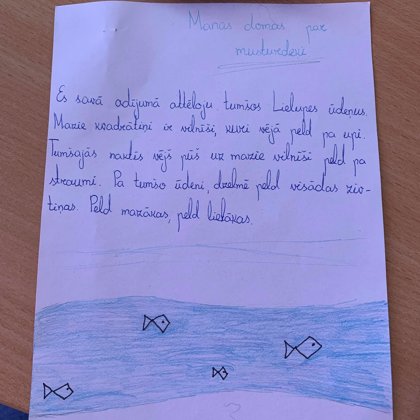 Manas domas par
musturdeķi
Es savā adījumā attēloju tumšos Lielupes ūdeņus.
Mazie kvadrātiņi ir vilnīši, kuri vējā peld pa upi.
Tumšajās naktīs vējš pūš uz mazie vilnīši peld pa
straumi. Pa tumšo ūdeni, dzelmē peld visādas ziv-
tiņas. Peld mazākas, peld lielākas.